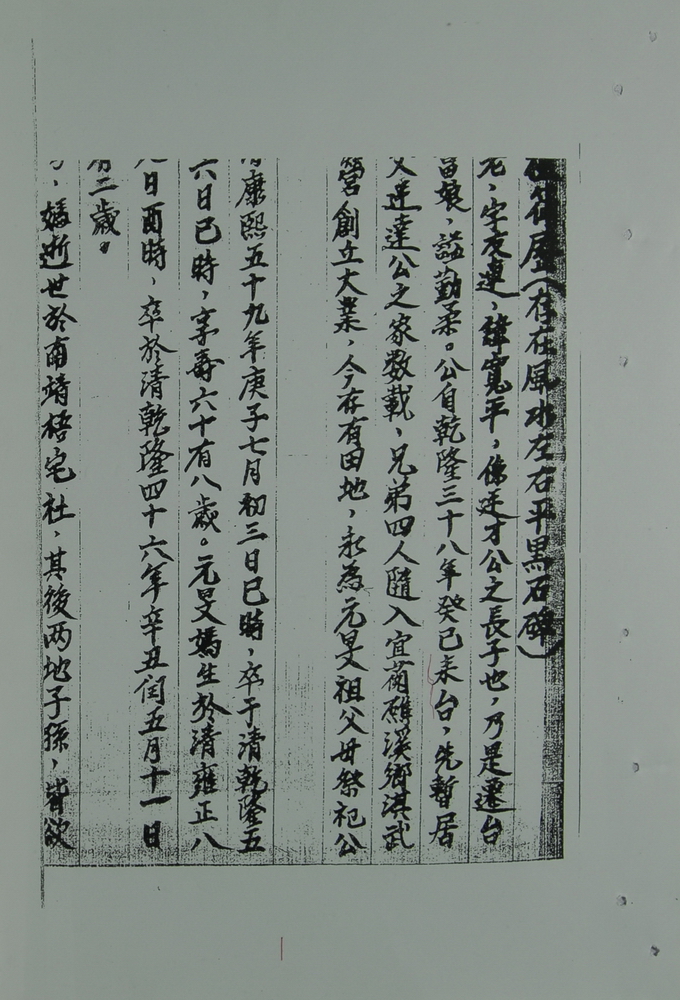 厝（存在風水左右平黑石碑）
字友連，諱寬平，係廷才公之長子也，乃是遷台
娘，諡勤柔。公自乾隆三十八年癸巳來台，先暫居
达達公之家数載，兄弟四人隨入宜蘭礁溪鄉淇武
營創立大業，今存有田地，永為元旻祖父母祭祀公
康熙五十九年庚子七月初三日巳時，卒于清乾隆五
六日巳時，享壽六十有八歲。元旻媽生於清雍正八
日酉時，卒於清乾隆四十六年辛丑閏五月十一日
二歲。
，媽逝世於南靖梧宅社，其後两地子孫，皆欲